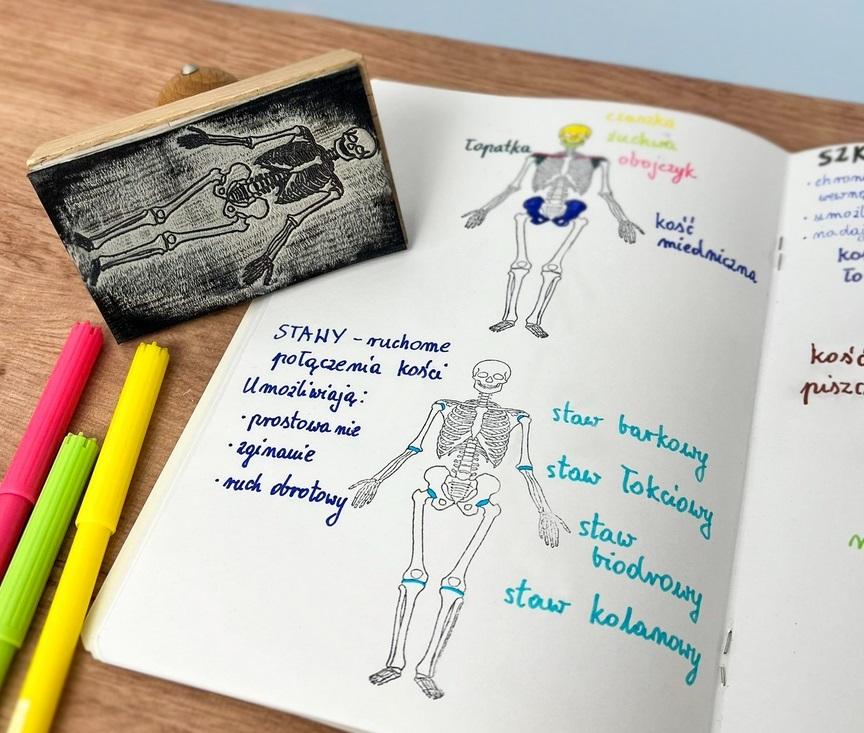 czaszka
żuchwa
łopatka
obojczyk
kość
miedniczna
STAWY - ruchome
połączenia kości
Umożliwiają:
• prostowanie
• zginanie
• ruch obrotowy
staw barkowy
staw łokciowy
staw
biodrowy
staw kolanowy
SZK
• chroni
• umożl
• nadaj
kość
piszcz